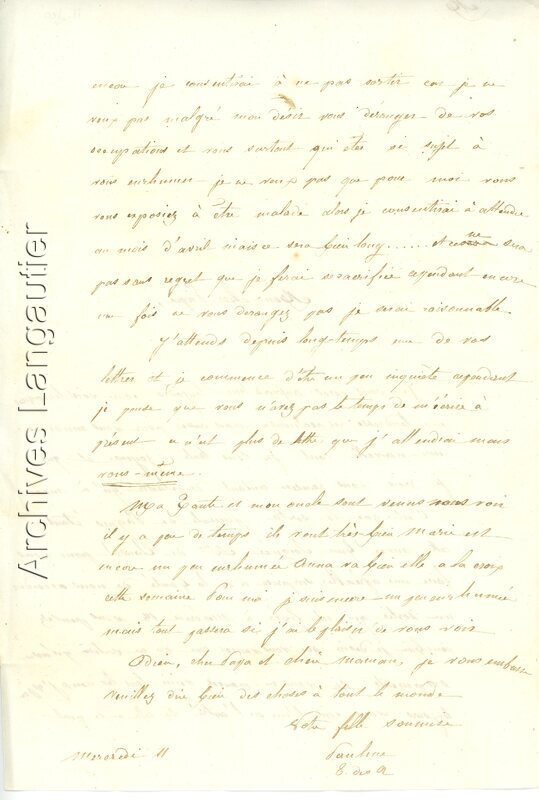 encore je consentirai à ne pas sortir car je ne
veux pas malgré mon désir vous déranger de vos
occupations et vous surtout qui êtes si sujet à
vous enrhumer je ne veux pas que pour moi vous
vous exposiez à être malade alors je consentirai à attendre
au mois d'avril mais ce sera bien long..... et ce ne sera
pas sans regret que je ferai ce sacrifice cependant encore
une fois ne vous dérangez pas je serai raisonnable
J'attends depuis long-temps une de vos
lettres et je commence d'être un peu inquiète cependant
je pense que vous n'avez pas le temps de m'écrire à
présent ce n'est plus de lettre que j'attendrai mais
vous-même.
Ma Tante et mon oncle sont venus nous voir
il y a peu de temps ils vont très bien Marie est
encore un peu enrhumée Anna va bien elle a la croix
cette semaine Pour moi je suis encore un peu enrhumée
mais tout passera si j'ai le plaisir de vous voir
Adieu, cher Papa et chère Maman, je vous embrasse
Veuillez dire bien des choses à tout le monde
Votre fille soumise
Mercredi 11
Pauline
E. des A
Archives Langautier